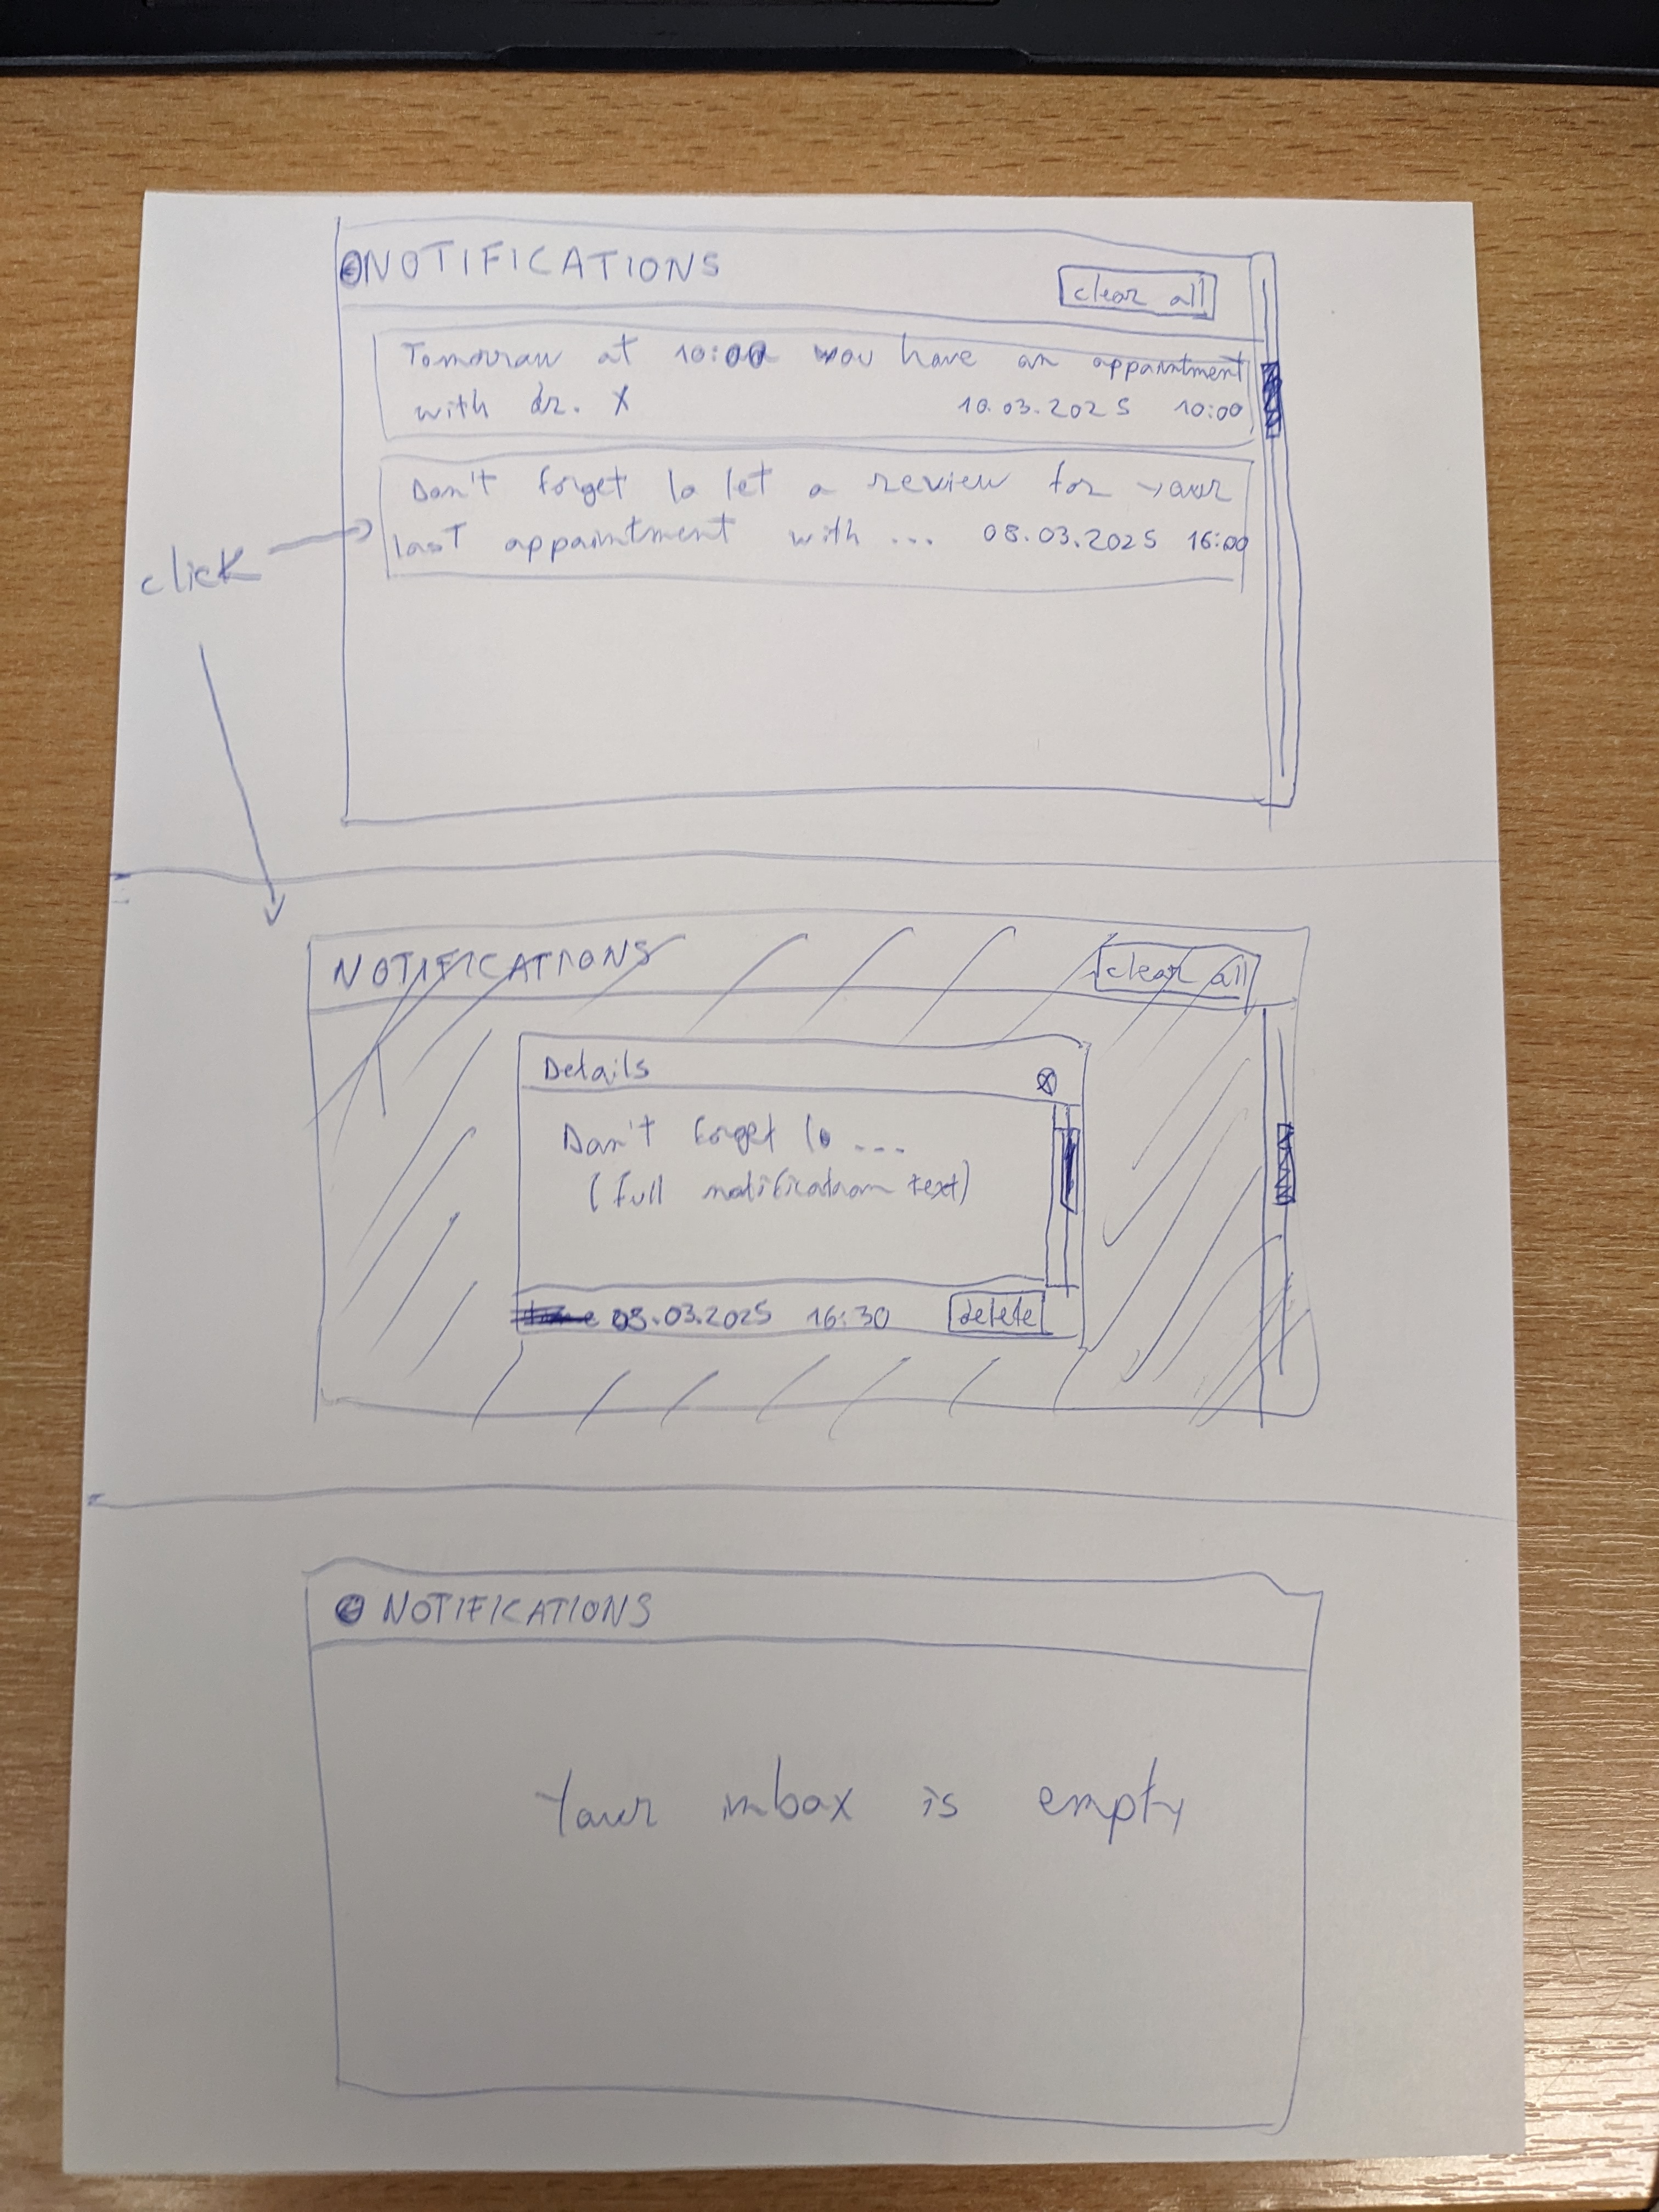 NOTIFICATIONS
clear all
Tomorrow at 10:00 you have an appointment
with dr. X 10.03.2025 10:00
Don't forget to let a review for your
last appointment with ... 08.03.2025 16:00
click
NOTIFICATIONS
clear all
Details
Don't forget to ...
(full notification text)
08.03.2025 16:30 delete
NOTIFICATIONS
Your inbox is empty